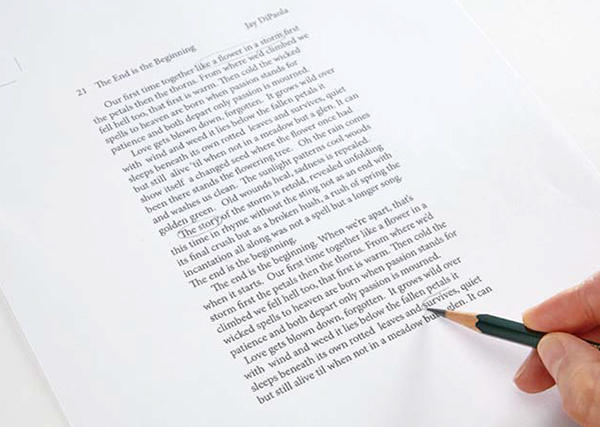 Jay DiPaola
21 The End is the Beginning
Our first time together like a flower in a storm first
the petals then the thorns. From where we'd climbed we
fell hell too, that first is warm. Then cold the wicked
spells to heaven are born when passion stands for
patience and both depart only passion is mourned.
Love gets blown down, forgotten. It grows wild over
with wind and weed it lies below the fallen petals it
sleeps beneath its own rotted leaves and survives, quiet
but still alive 'til when not in a meadow but a glen. It can
show itself a changed seed where the flower once had
been there stands the flowering tree. Oh the rain comes
and washes us clean. The sunlight patterns cool woods
golden green. Old wounds heal, sadness is repealed.
The story of the storm is retold, revealed unfolding
this time in rhyme without the sting not as an end with
its final crush but as a broken hush, a rush of spring the
incantation all along was not a spell but a longer song.
The end is the beginning.
The end is the beginning. When we're apart, that's
when it starts. Our first time together like a flower in a
storm first the petals then the thorns. From where we'd
climbed we fell hell too, that first is warm. Then cold the
wicked spells to heaven are born when passion stands for
patience and both depart only passion is mourned.
Love gets blown down, forgotten. It grows wild over
with wind and weed it lies below the fallen petals it
sleeps beneath its own rotted leaves and survives, quiet
but still alive til when not in a meadow but glen. It can